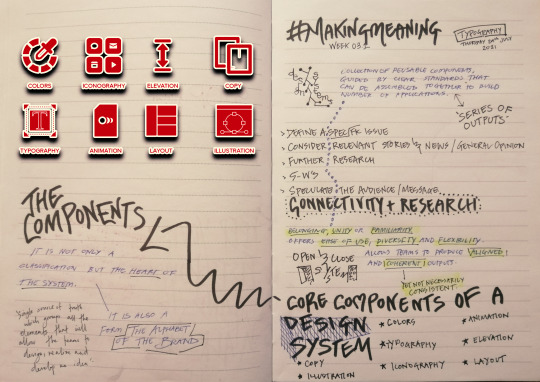 COLORS
ICONOGRAPHY
ELEVATION
COPY
TYPOGRAPHY
ANIMATION
LAYOUT
ILLUSTRATION
THE
COMPONENTS
IT IS NOT ONLY A
CLASSIFICATION BUT THE HEART OF
THE SYSTEM.
IT IS ALSO A
FORM THE ALPHABET
OF THE BRAND
"Single source of truth
which groups all the
elements that will
allow the teams to
design, realise and
develop an idea"
#MAKINGMEANING
WEEK 03.1
TYPOGRAPHY
2021
design systems
COLLECTION OF REUSABLE COMPONENTS,
GUIDED BY CLEAR STANDARDS THAT
CAN BE ASSEMBLED TOGETHER TO BUILD
NUMBER OF APPLICATIONS.
"SERIES OF
OUTPUTS"
> DEFINE A SPECIFIC ISSUE
> CONSIDER RELEVANT STORIES & NEWS / GENERAL OPINION
> FURTHER RESEARCH
> 5-W'S
> SPECULATE THE AUDIENCE/MESSAGE
CONNECTIVITY + RESEARCH
BELONGING, UNITY OR FAMILIARITY
OFFERS EASE OF USE, DIVERSITY AND FLEXIBILITY.
OPEN & CLOSE
SYSTEM
ALLOWS TEAMS TO PRODUCE ALIGNED
AND COHERENT OUTPUTS.
BUT NOT NECESSARILY
CONSISTENT
CORE COMPONENTS OF A
DESIGN
SYSTEM
* COLORS
* ANIMATION
* TYPOGRAPHY
* ELEVATION
* COPY
* ICONOGRAPHY
* LAYOUT
* ILLUSTRATION